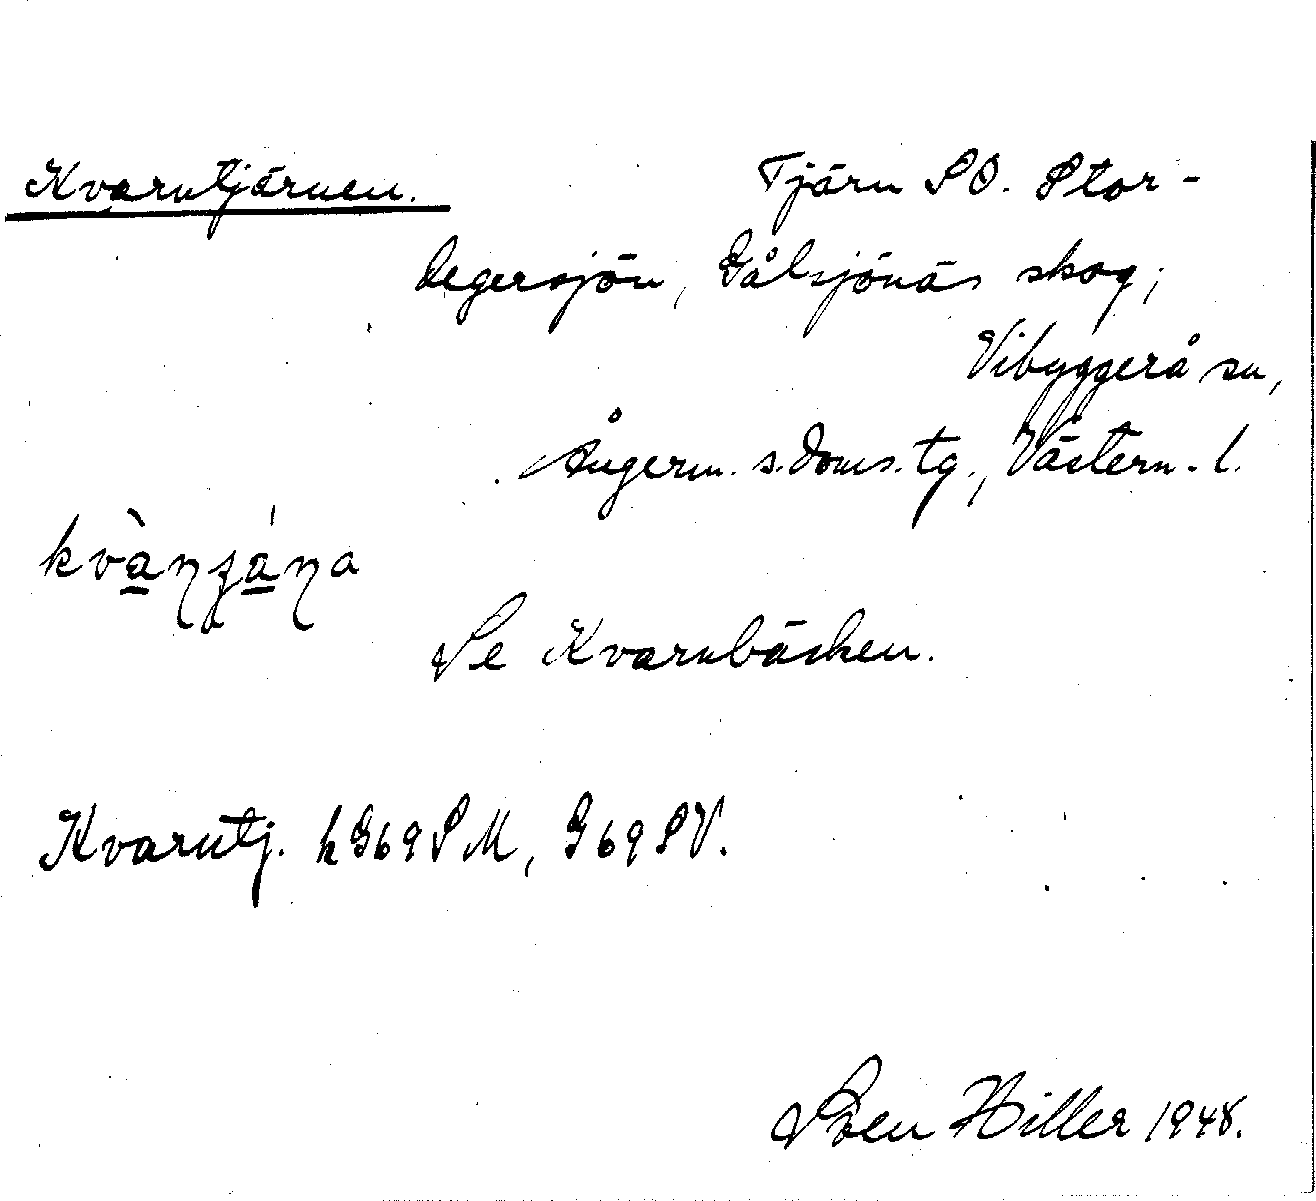 Kvarntjärnen.
Tjärn SO. Stor-
degersjön, Gålsjönäs skog,
Vibyggerå sn,
Ångerm. s. doms. tg., Västern. l.
Se Kvarnbäcken.
Kvarntj. h G69 SM, G69 SV.
Sven Hiller 1948.